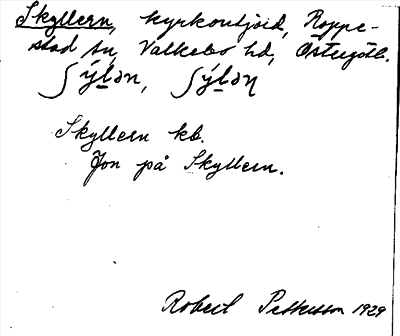 Skyllern, kyrkoutjord, Roppe-
stad sn, Valkebo hd, Östergötl.
ʃýlən, ʃýləη
Skyllern kb.
Jon på Skyllern.
Robert Pettersson 1929